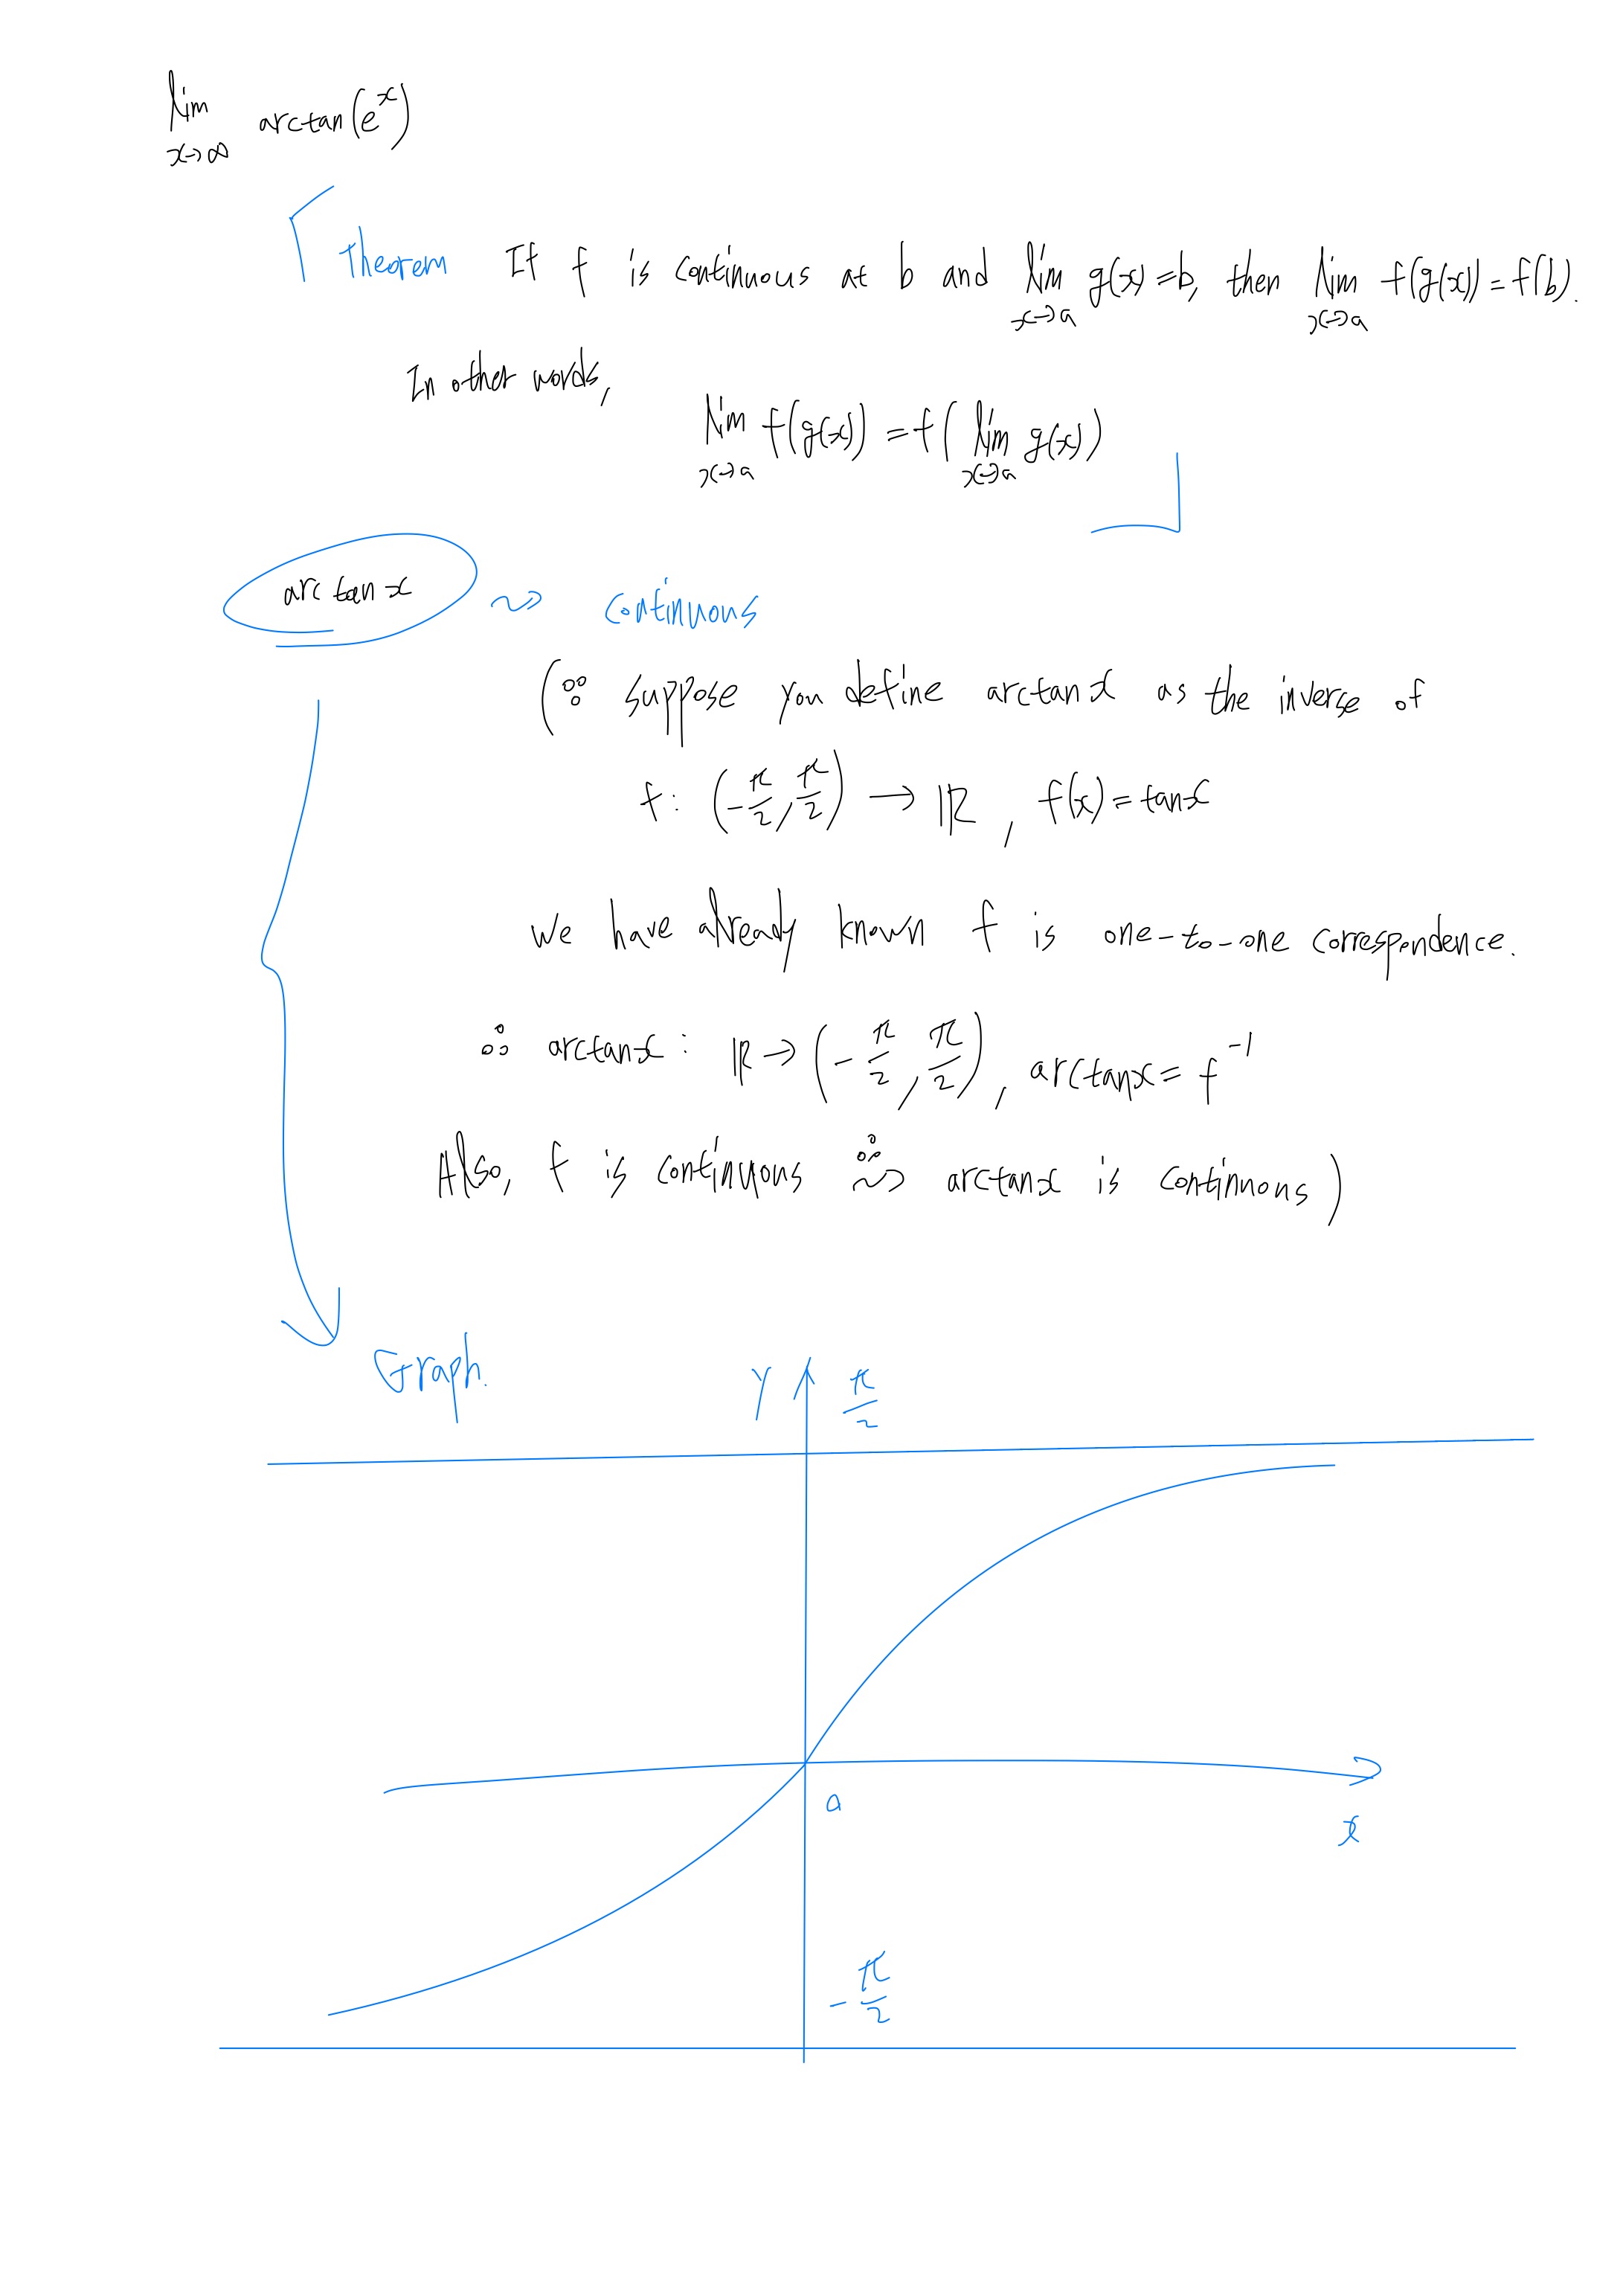 lim x→∞ arctan(e^x)
Theorem If f is continuous at b and lim x→a g(x)=b, then lim x→a f(g(x))=f(b).
In other words,
lim x→a f(g(x)) = f( lim x→a g(x))
arctan x ⇝ continuous
(∵ suppose you define arctan x as the inverse of
f: (-π/2, π/2) → ℝ, f(x)=tanx
We have already known f is one-to-one correspondence.
∴ arctanx: ℝ→(-π/2, π/2), arctanx= f^-1
Also, f is continuous ∴ ⇝ arctanx is continuous)
Graph.
y
π/2
0
x
-π/2